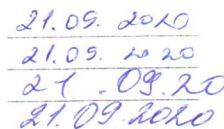 21.09. 2020
21.09. 2020
21.09.20
21.09.2020